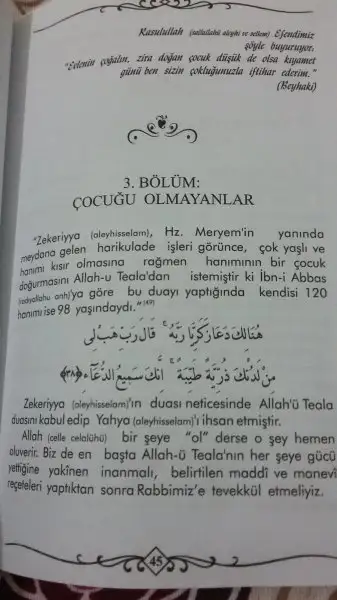 Rasulullah (sallallahü aleyhi ve sellem) Efendimiz
şöyle buyuruyor.
"Evlenin çoğalın, zira doğan çocuk düşük de olsa kıyamet
günü ben sizin çokluğunuzla iftihar ederim."
(Beyhaki)
3. BÖLÜM:
ÇOCUĞU OLMAYANLAR
"Zekeriyya (aleyhisselam), Hz. Meryem'in yanında
meydana gelen harikulade işleri görünce, çok yaşlı ve
hanımı kısır olmasına rağmen hanımının bir çocuk
doğurmasını Allah-u Teala'dan istemiştir ki İbn-i Abbas
(radıyallahu anh)'ya göre bu duayı yaptığında kendisi 120
hanımı ise 98 yaşındaydı." (49)
هُنَالِكَ دَعَا زَكَرِيَّا رَبَّهُ ۚ قَالَ رَبِّ هَبْ لِى
مِنْ لَدُنْكَ ذُرِّيَّةً طَيِّبَةً ۚ اِنَّكَ سَمِيعُ الدُّعَٓاءِ ﴿٣٨﴾
Zekeriyya (aleyhisselam)'ın duası neticesinde Allah'ü Teala
duasını kabul edip Yahya (aleyhisselam)'ı ihsan etmiştir.
Allah (celle celalühü) bir şeye "ol" derse o şey hemen
oluverir. Biz de en başta Allah-ü Teala'nın her şeye gücü
yettiğine yakînen inanmalı, belirtilen maddî ve manevî
reçeteleri yaptıktan sonra Rabbimiz'e tevekkül etmeliyiz.
45